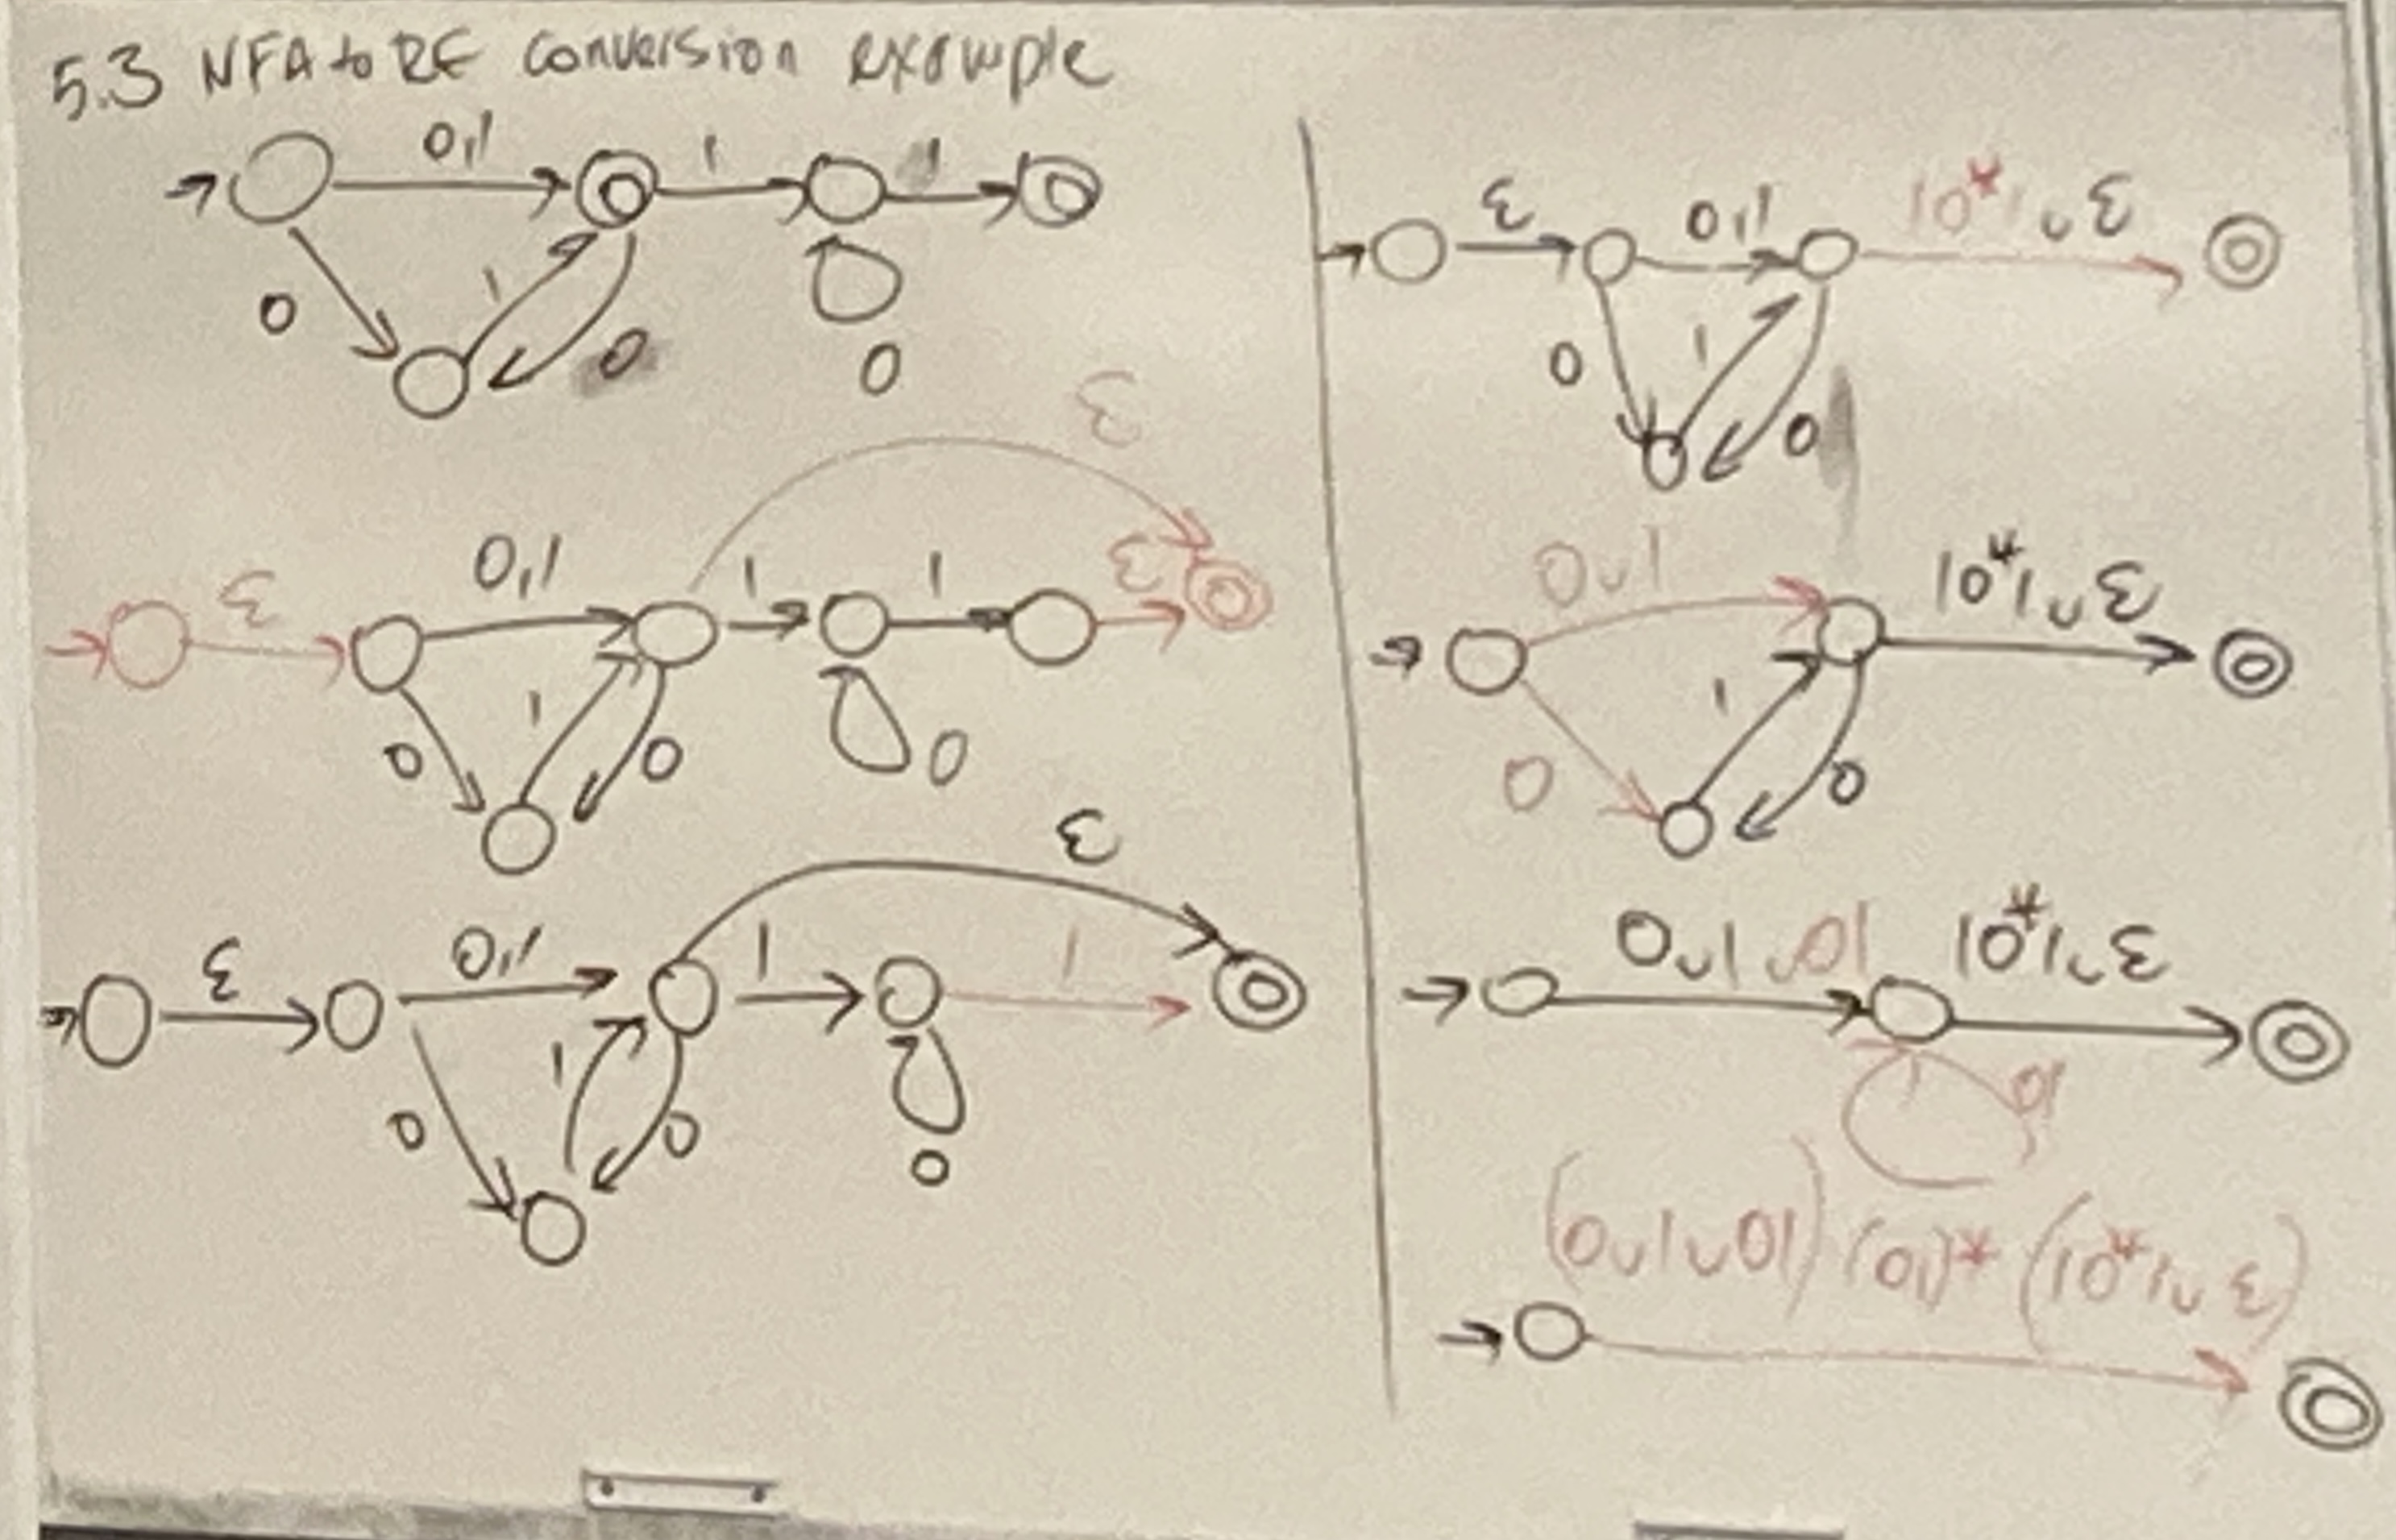 5.3 NFA to RE conversion example
0,1 1 1
0 1 0 0
ε
ε 0,1 1 1 ε
0 1 0 0
ε
ε 0,1 1 1
0 1 0 0
ε 0,1 10*1∪ε
0 1 0
0∪1 10*1∪ε
0 1 0
0∪1∪01 10*1∪ε
01
(0∪1∪01) (01)* (10*1∪ε)